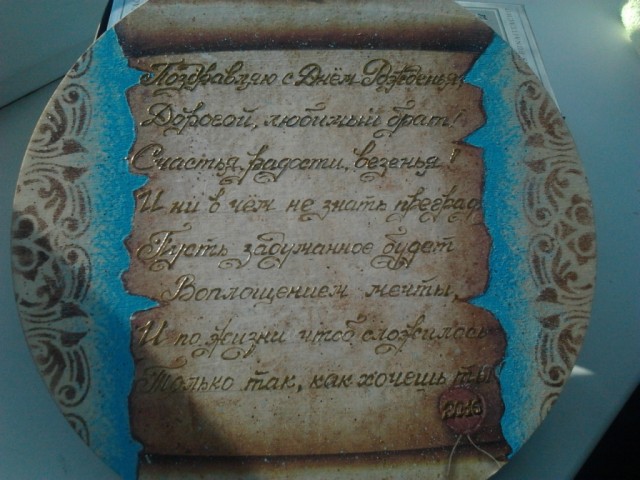 Поздравляю с Днём Рожденья,
Дорогой, любимый брат!
Счастья, радости, везенья!
И ни в чём не знать преград
Пусть задуманное будет
Воплощением мечты,
И по жизни чтоб сложилось
Только так, как хочешь ты